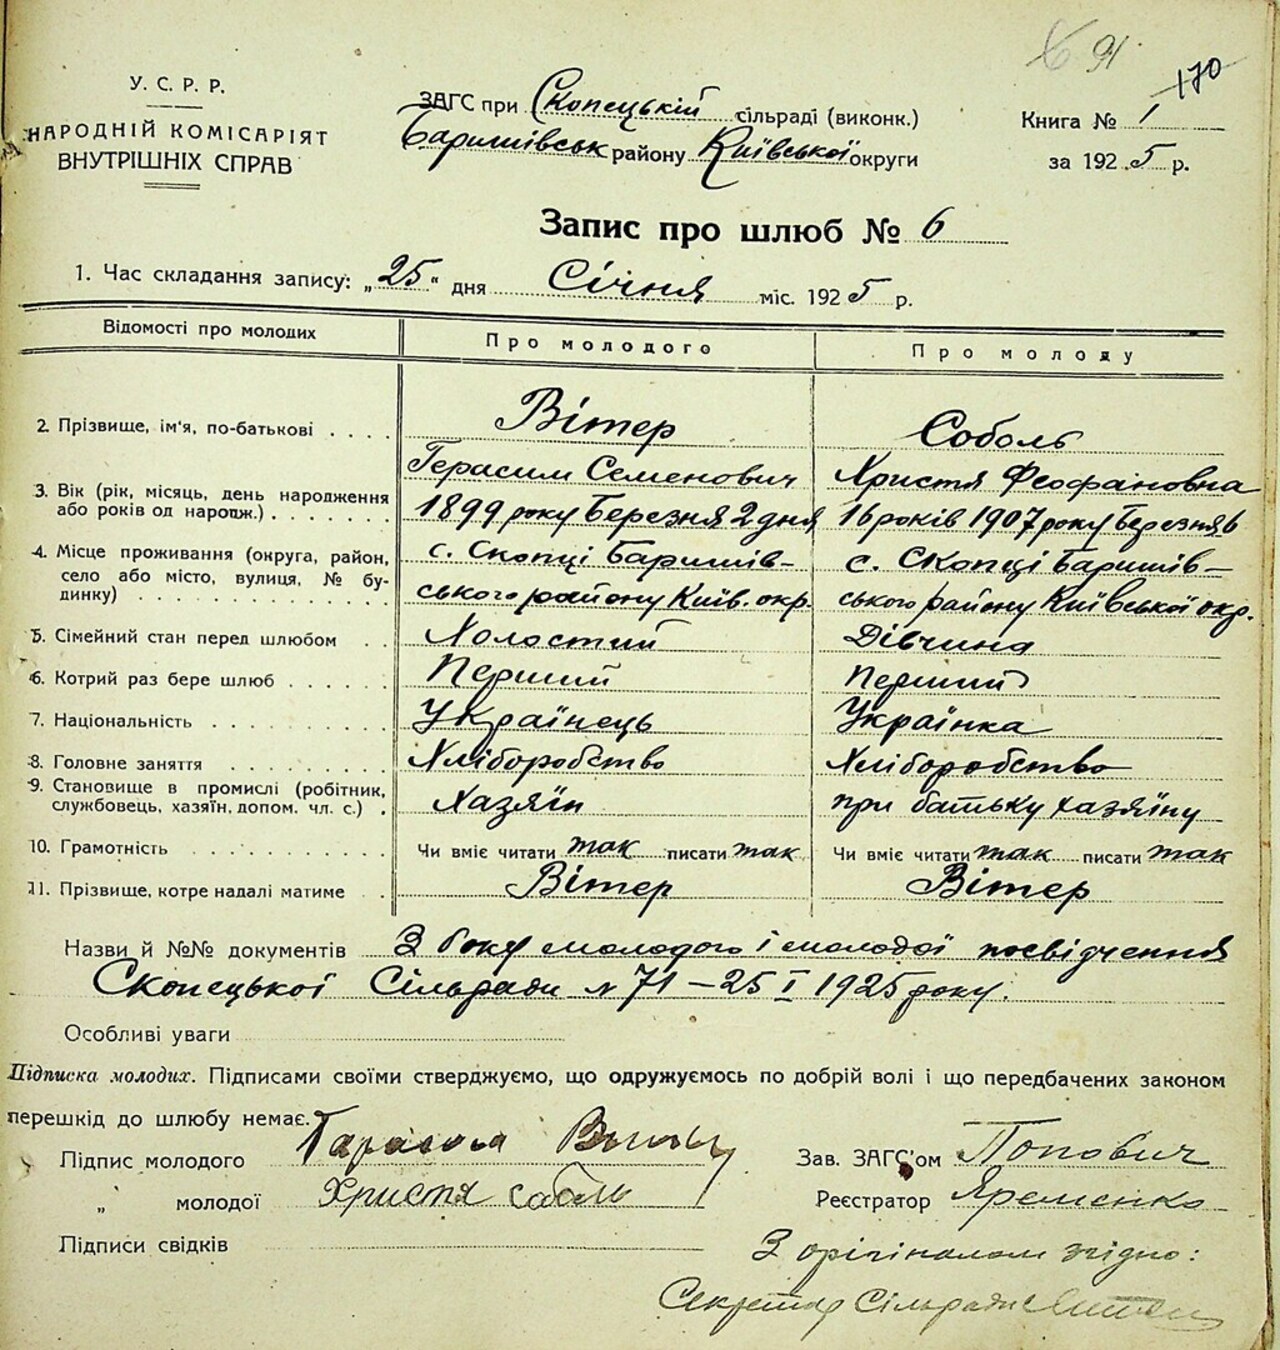 91
170
У. С. Р. Р.
НАРОДНІЙ КОМІСАРІЯТ
ВНУТРІШНІХ СПРАВ
ЗАГС при Скопецькій сільраді (виконк.)
Баришівськ району Київської округи
Книга № 1
за 1925 р.
Запис про шлюб № 6
1. Час складання запису: „25" дня Січня міс. 1925 р.
Відомості про молодих
Про молодого
Про молоду
2. Прізвище, ім'я, по-батькові . . . .
Вітер
Герасим Семенович
Соболь
Христя Феофановна
3. Вік (рік, місяць, день народження
або років од народж.) . . . . . . .
1899 року Березня 2 дня
16 років 1907 року Березня 6
4. Місце проживання (округа, район,
село або місто, вулиця, № бу-
динку) . . . . . . . . . . . . .
с. Скопці Баришів-
ського району Київ. окр.
с. Скопці Баришів-
ського району Київської окр.
5. Сімейний стан перед шлюбом . .
Холостий
Дівчина
6. Котрий раз бере шлюб . . . . . .
Перший
Перший
7. Національність . . . . . . . . . .
Українець
Українка
8. Головне заняття . . . . . . . . .
Хліборобство
Хліборобство
9. Становище в промислі (робітник,
службовець, хазяїн, допом. чл. с.) .
Хазяїн
при батьку хазяїну
10. Грамотність . . . . . . . . . . .
Чи вміє читати так писати так
Чи вміє читати так писати так
11. Прізвище, котре надалі матиме .
Вітер
Вітер
Назви й №№ документів З боку молодого і молодої посвідчення
Скопецької Сільради № 71 – 25 I 1925 року.
Особливі уваги
Підписка молодих. Підписами своїми стверджуємо, що одружуємось по добрій волі і що передбачених законом
перешкід до шлюбу немає.
Підпис молодого
„ молодої Христя Соболь
Підписи свідків
Зав. ЗАГС'ом Попович
Реєстратор Яременко
З орігіналом згідно:
Секретар Сільради